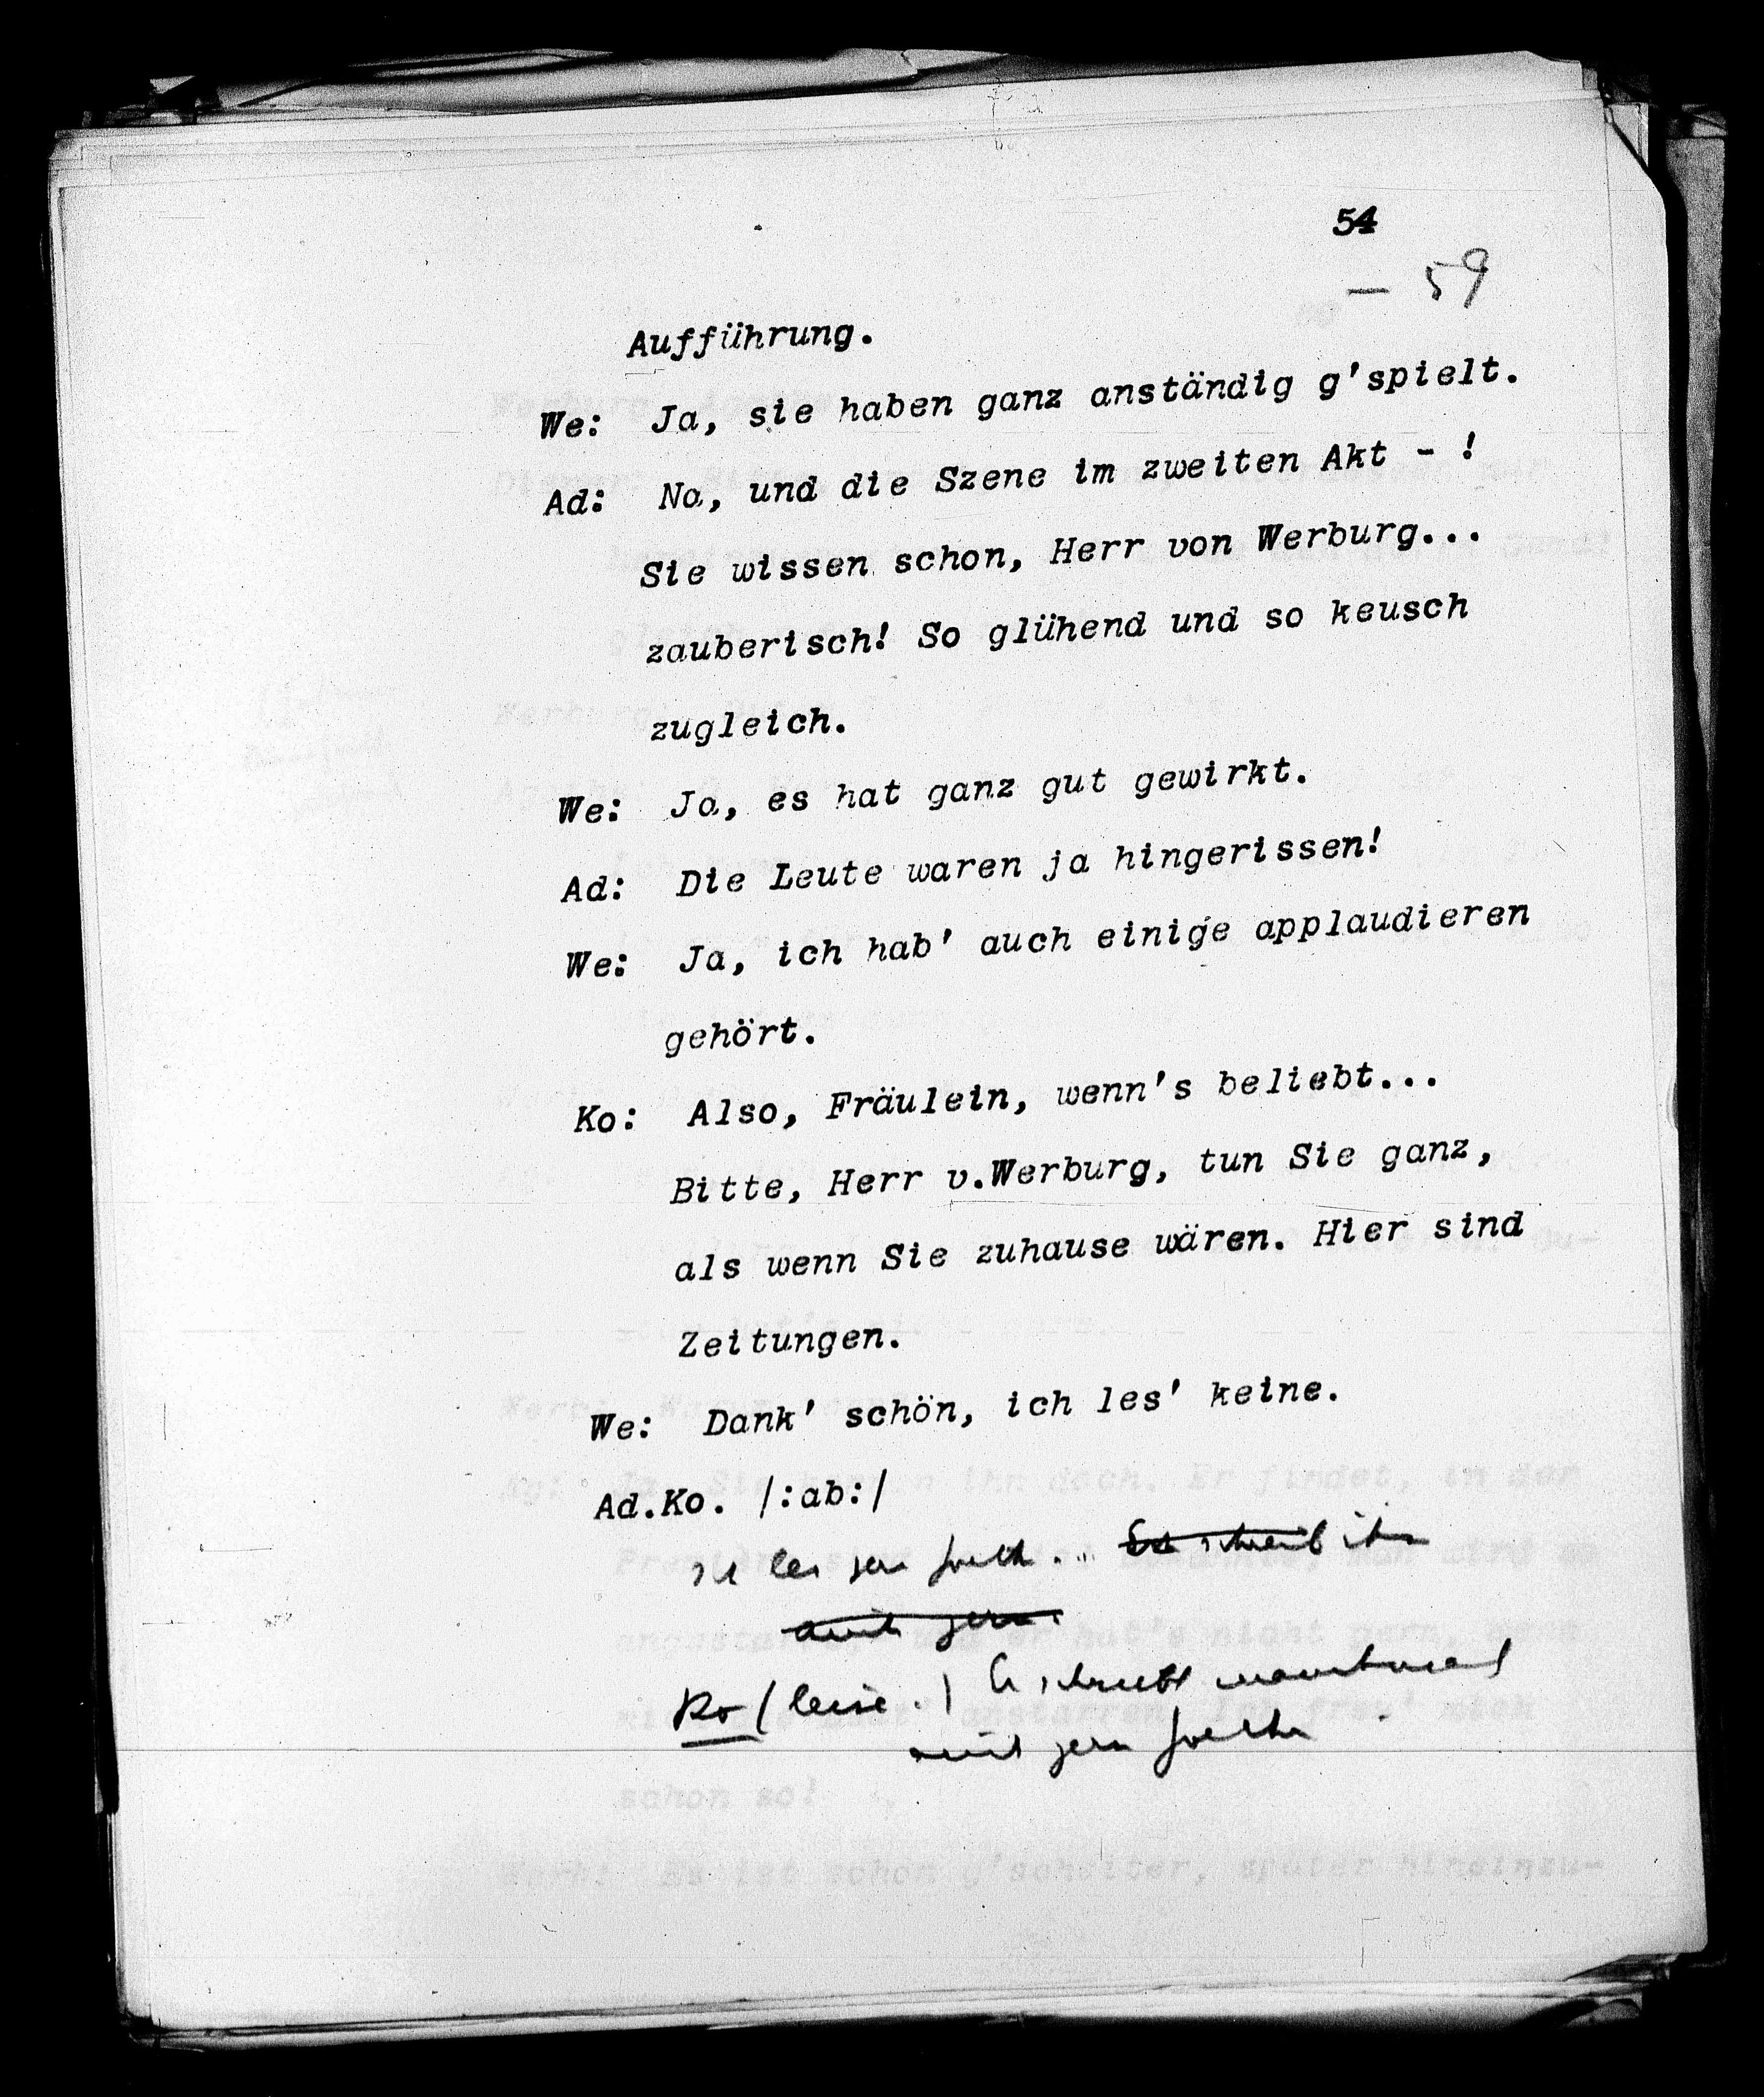 54
— 59
Aufführung.
We: Ja, sie haben ganz anständig g'spielt.
Ad: Na, und die Szene im zweiten Akt - !
Sie wissen schon, Herr von Werburg...
zauberisch! So glühend und so keusch
zugleich.
We: Ja, es hat ganz gut gewirkt.
Ad: Die Leute waren ja hingerissen!
We: Ja, ich hab' auch einige applaudieren
gehört.
Ko: Also, Fräulein, wenn's beliebt...
Bitte, Herr v.Werburg, tun Sie ganz,
als wenn Sie zuhause wären. Hier sind
Zeitungen.
We: Dank' schön, ich les' keine.
Ad.Ko. /:ab:/
schreib
Ko (leise.) schreibt manchmal